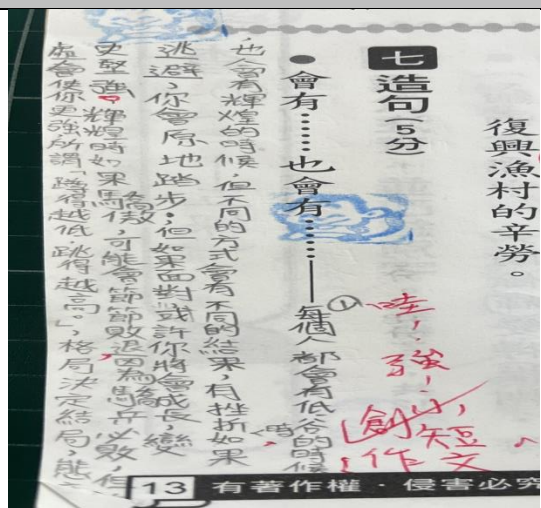 復興漁村的辛勞。
七 造句(5分)
●會有……也會有……——每個人都會有低谷的時候
,也會有輝煌的時候,但不同的方式會有不同的結果,有挫折如果
時,
逃避,你會原地踏步,但如果面對,或許你將會成長,變
更堅強,輝煌時如果驕傲,可能會節節敗退因為驕兵必敗,但
虛會使你更強,所謂「蹲得越低,跳得越高。」,格局決定結局,態
哇,強!
小短文
創作
13 有著作權‧侵害必究